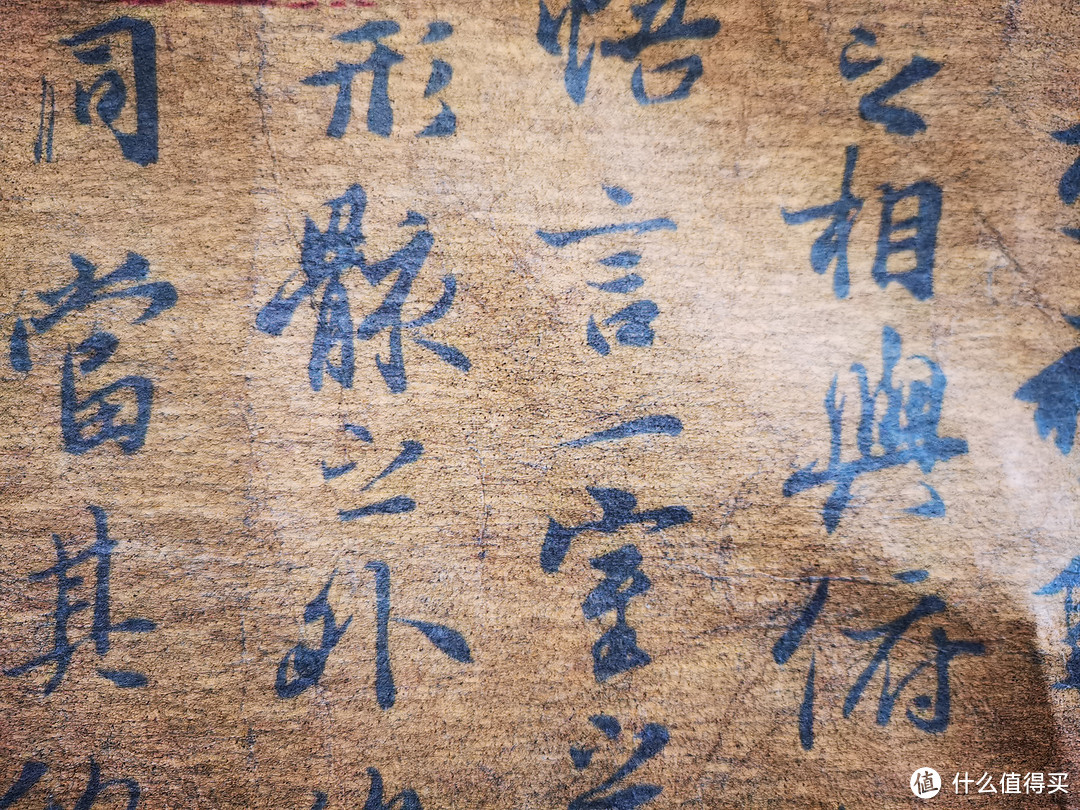 之相與俯
悟言一室之
形骸之外
同當其
值 什么值得买